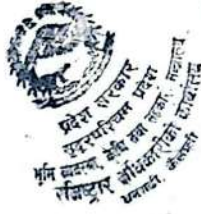 प्रदेश सरकार
सुदूरपश्चिम प्रदेश
भूमि व्यवस्था, कृषि तथा सहकारी मन्त्रालय
रजिष्ट्रार अधिकारीको कार्यालय
धनगढी, कैलाली